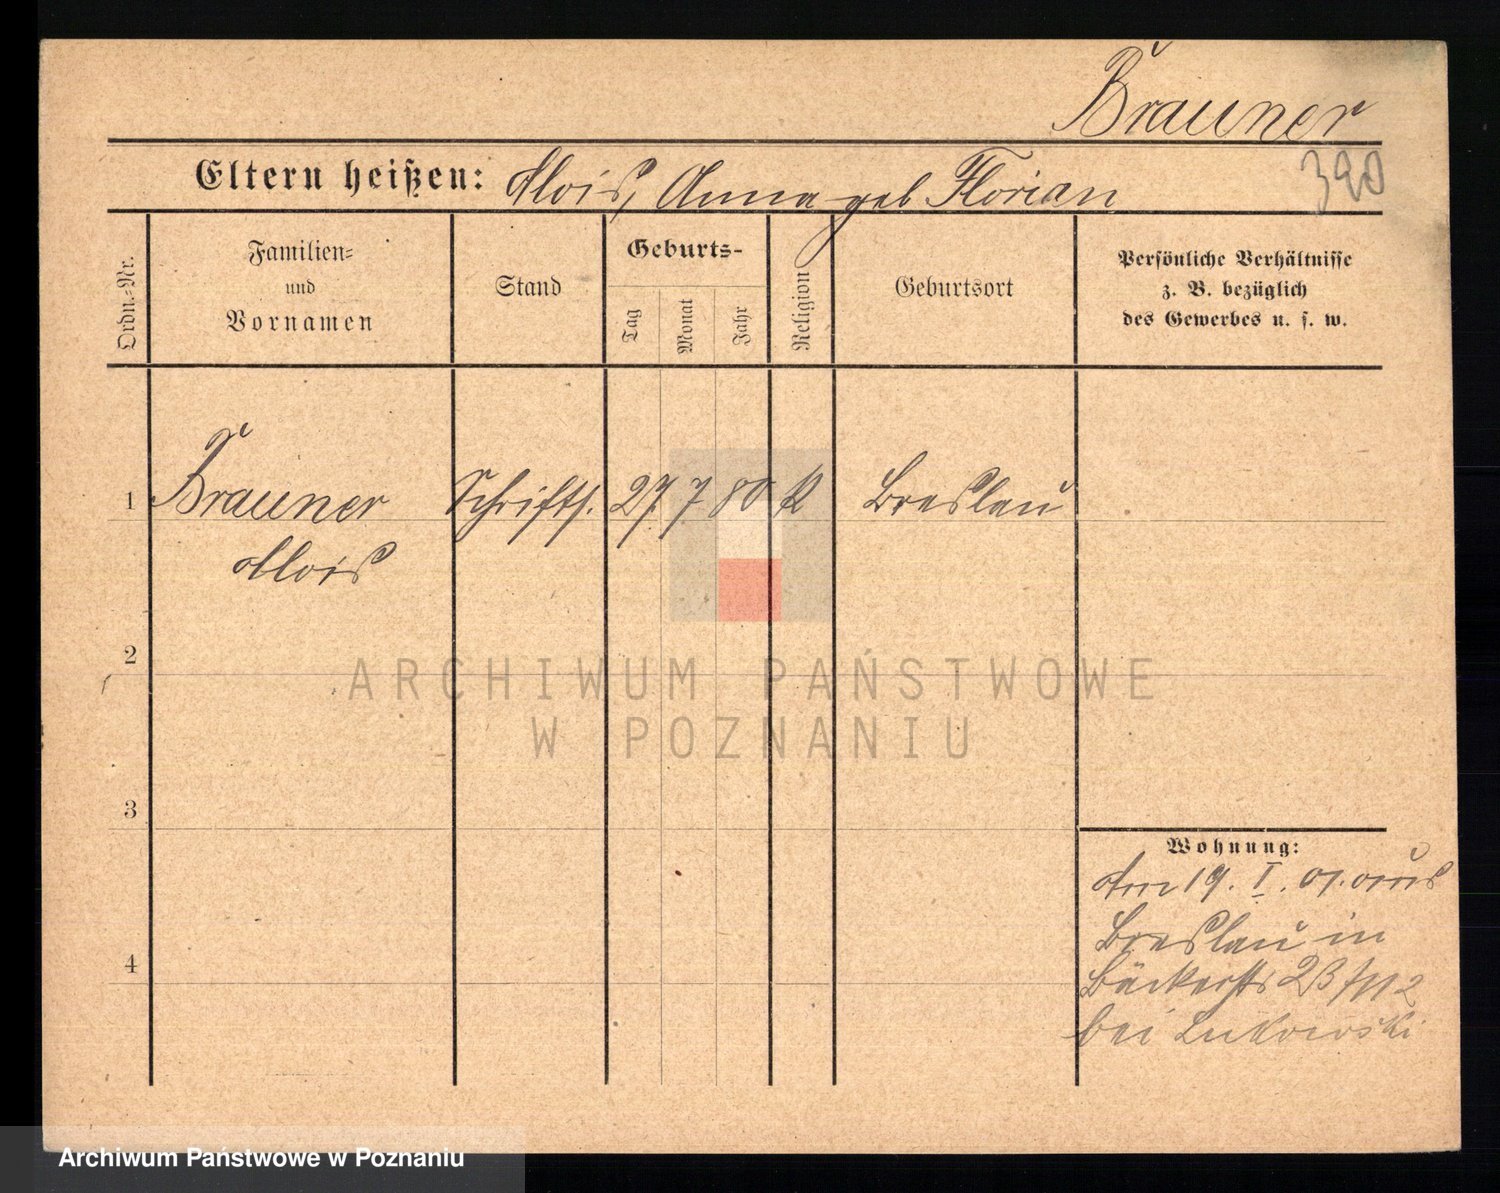 Brauner
Eltern heißen: Alois, Anna geb Florian
390
Ordn.-Nr.
Familien-
und
Vornamen
Stand
Geburts-
Tag
Monat
Jahr
Religion
Geburtsort
Persönliche Verhältnisse
z. B. bezüglich
des Gewerbes u. s. w.
1 Brauner Schrifts. 27. 7. 80 k Breslau
Alois
2
ARCHIWUM PAŃSTWOWE
W POZNANIU
3
Wohnung:
Am 19. I. 01. aus
Breslau in
4
Bäckerstr 23
bei Lukowski
Archiwum Państwowe w Poznaniu